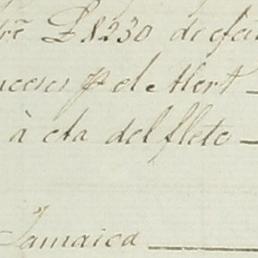 tre £1230 de efec
uceses p el Alert
à cta del flete
Jamaica